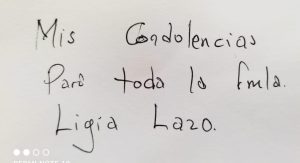 Mis Condolencias
Para toda la fmla.
Ligia Lazo.